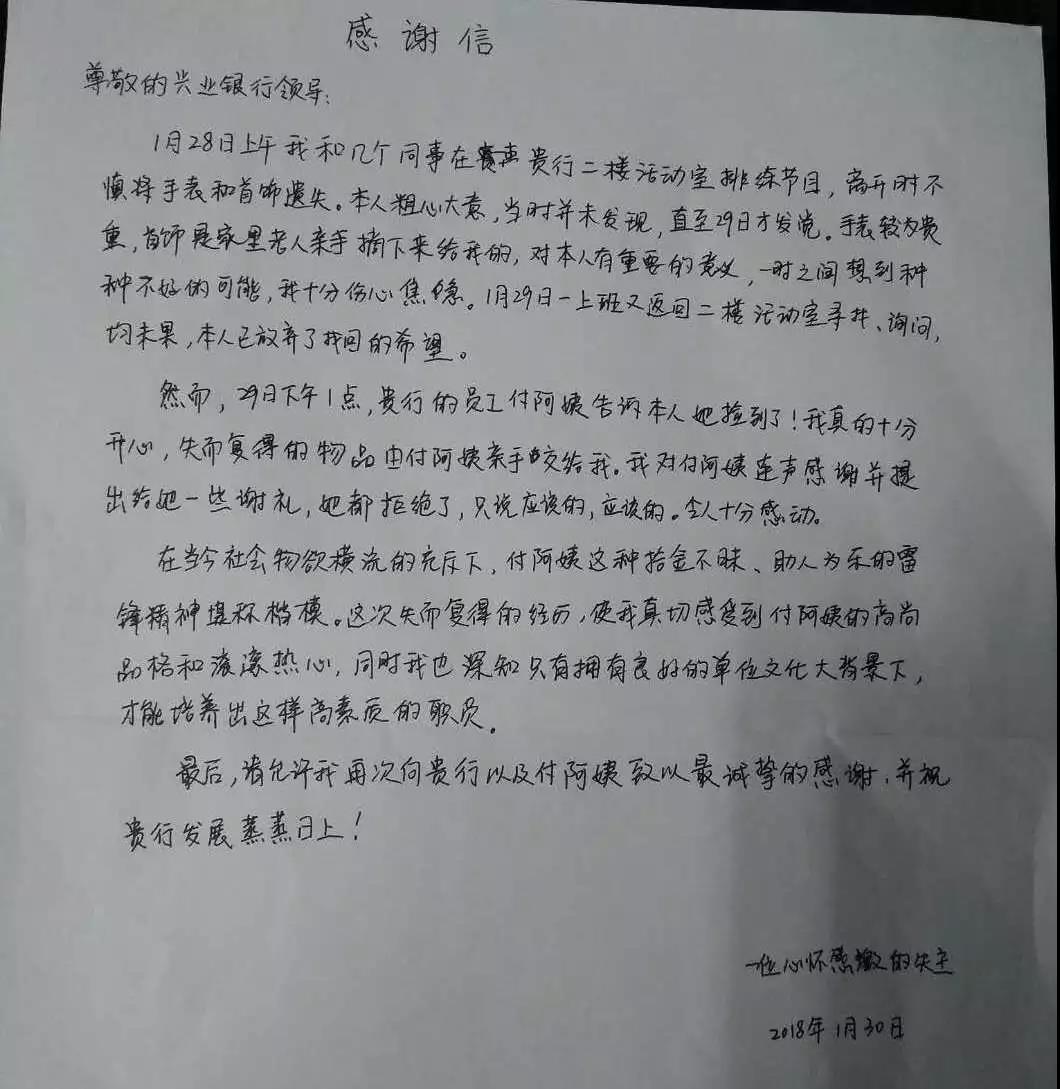 感谢信
尊敬的兴业银行领导:
1月28日上午我和几个同事在贵行二楼活动室排练节目，离开时不
慎将手表和首饰遗失。本人粗心大意，当时并未发现，直至29日才发觉。手表较为贵
重，首饰是家里老人亲手摘下来给我的，对本人有重要的意义，一时之间想到种
种不好的可能，我十分伤心焦急。1月29日一上班又返回二楼活动室寻找、询问，
均未果，本人已放弃了找回的希望。
然而，29日下午1点，贵行的员工付阿姨告诉本人她捡到了！我真的十分
开心，失而复得的物品由付阿姨亲手交给我。我对付阿姨连声感谢并提
出给她一些谢礼，她都拒绝了，只说应该的，应该的。令人十分感动。
在当今社会物欲横流的充斥下，付阿姨这种拾金不昧、助人为乐的雷
锋精神堪称楷模。这次失而复得的经历，使我真切感受到付阿姨的高尚
品格和滚滚热心，同时我也深知只有拥有良好的单位文化大背景下，
才能培养出这样高素质的职员。
最后，请允许我再次向贵行以及付阿姨致以最诚挚的感谢，并祝
贵行发展蒸蒸日上！
一位心怀感激的失主
2018年1月30日